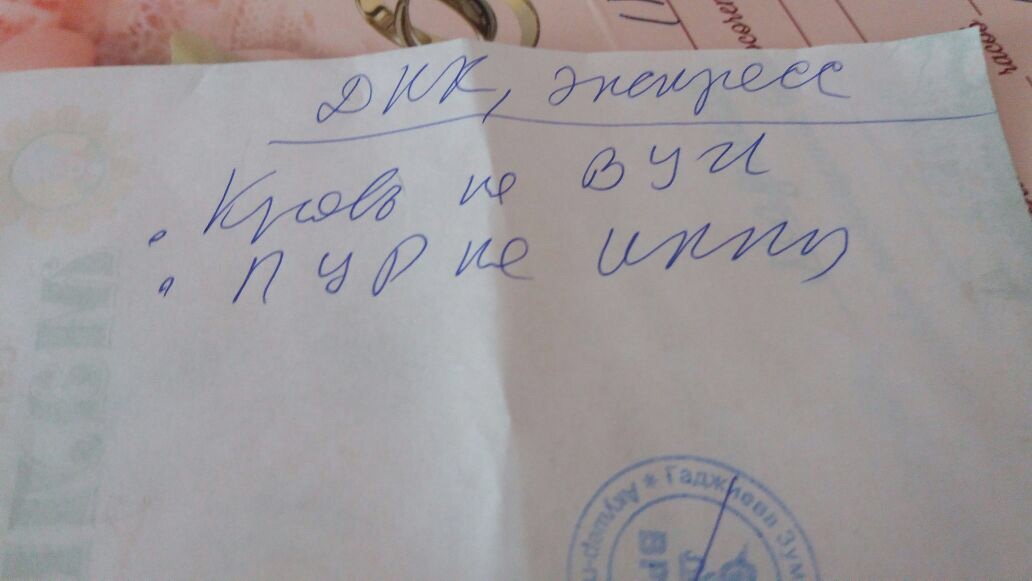 ДКК, экспресс
• Кровь на ВУИ
• ПЦР на иппп
* Гаджиева Зум
Акушер-